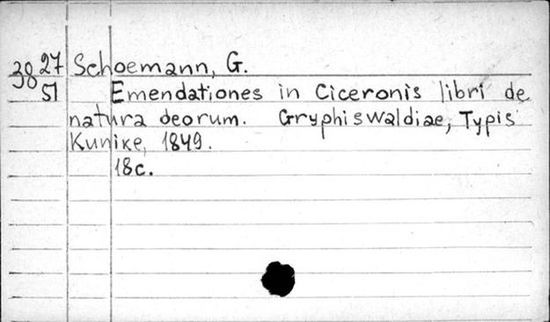 38 27 Schoemann, G.
51 Emendationes in Ciceronis libri de
natura deorum. Gryphiswaldiae, Typis
Kunike, 1849.
18c.